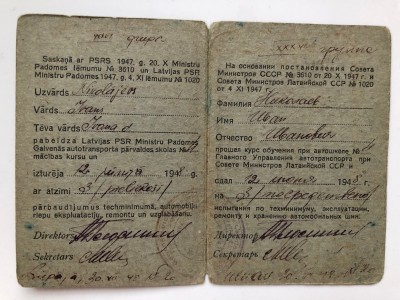 Saskaņā ar PSRS 1947. g. 20. X Ministru
Padomes lēmumu № 3610 un Latvijas PSR
Ministru Padomes 1947. g. 4. XI lēmumu № 1020
Uzvārds Nikolajevs
Vārds Ivans
Tēva vārds Ivana d.
pabeidza Latvijas PSR Ministru Padomes
Galvenās autotransporta pārvaldes skolas №
mācības kursu un
izturēja 1948. g.
ar atzīmi 3
pārbaudījumus techminimumā, automobiļu
riepu ekspluatēciju, remontu un uzglabāšanu.
Direktors
Sekretārs
группа
На основании постановления Совета
Министров СССР № 3610 от 20 X 1947 г. и
Совета Министров Латвийской ССР № 1020
от 4 XI 1947 г.
Фамилия Николаев
Имя Иван
Отчество Иванович
прошел курс обучения при автошколе №
Главного Управления автотранспорта при
Совете Министров Латвийской ССР и
сдал 2. июня 1948 г.
на 3 (посредственно)
испытания по техминимуму, эксплуатации,
ремонту и хранению автомобильных шин.
Директор
Секретарь